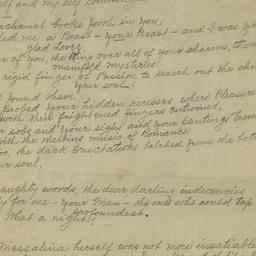 self and my self
Bacchanal broke forth in you,
called me a Beast - your Beast - and I was your
Glad Lover
of you, the King over all of your charms, the
manifold mysteries.
rigid finger of Passion to search out the
your soul,
found them,
probed your hidden recesses where Pleasure
with their frightened fingers entwined,
sobs and your sighs and your pantings
with the melting music of Romance
the dark Eructations belched from the
your soul.
naughty words, the dear darling indecencies
for me - your Man - the one who could tap
profoundest.
What a night!
Messalina herself was not more insatiable